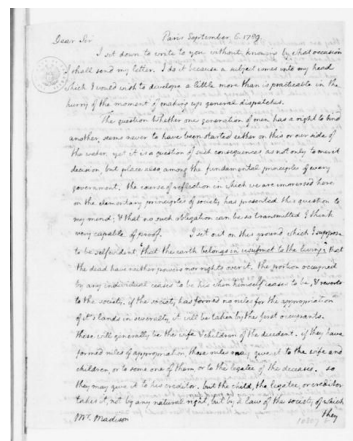 Dear Sir Paris September 6. 1789.
I sit down to write to you without knowing by what occasion
I shall send my letter. I do it because a subject comes into my head
which I would wish to develope a little more than is practicable in the
hurry of the moment of making up general dispatches.
The question Whether one generation of men has a right to bind
another, seems never to have been started either on this or our side of
the water. yet it is a question of such consequences as not only to merit
decision, but place also, among the fundamental principles of every
government. the course of reflection in which we are immersed here
on the elementary principles of society has presented this question to
my mind; & that no such obligation can be so transmitted I think
very capable of proof. I set out on this ground which I suppose
to be self evident, 'that the earth belongs in usufruct to the living': that
the dead have neither powers nor rights over it. the portion occupied
by any individual ceases to be his when himself ceases to be, & reverts
to the society. if the society has formed no rules for the appropriation
of it's lands in severalty, it will be taken by the first occupants.
these will generally be the wife & children of the decedent. if they have
formed rules of appropriation, those rules may give it to the wife and
children, or to some one of them, or to the legatee of the deceased. so
they may give it to his creditor. but the child, the legatee, or creditor
takes it, not by any natural right, but by a law of the society of which
Mr. Madison they